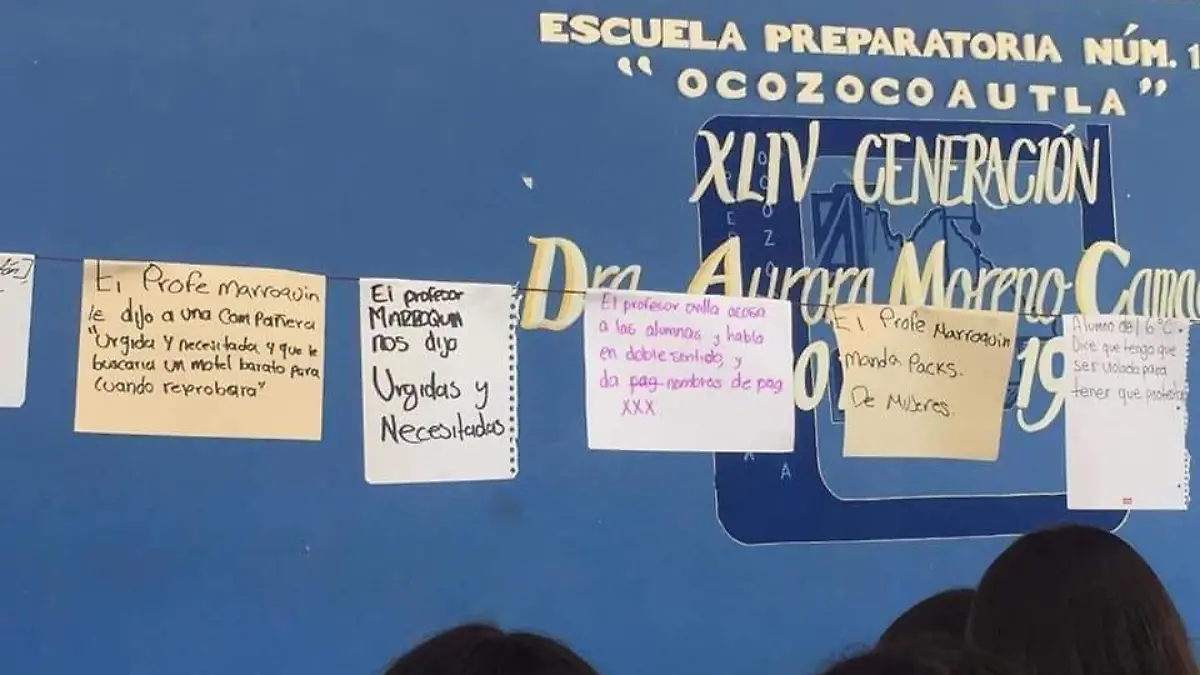 ESCUELA PREPARATORIA NÚM. 1
“ OCOZOCOAUTLA ”
XLIV GENERACIÓN
Dra. Aurora Moreno Cama
19
El Profe Marroquin
le dijo a una Compañera
"Urgida y necesitada, y que le
buscaria un motel barato para
cuando reprobara"
El profesor
MARROQUIN
nos dijo
Urgidas y
Necesitadas
El profesor ovilla acosa
a las alumnas y habla
en doble sentido, y
da pag nombres de pag
XXX
El Profe Marroquin
manda Packs.
De Mujeres.
Alumno del 6°C.
Dice que tengo que
ser violada para
tener que